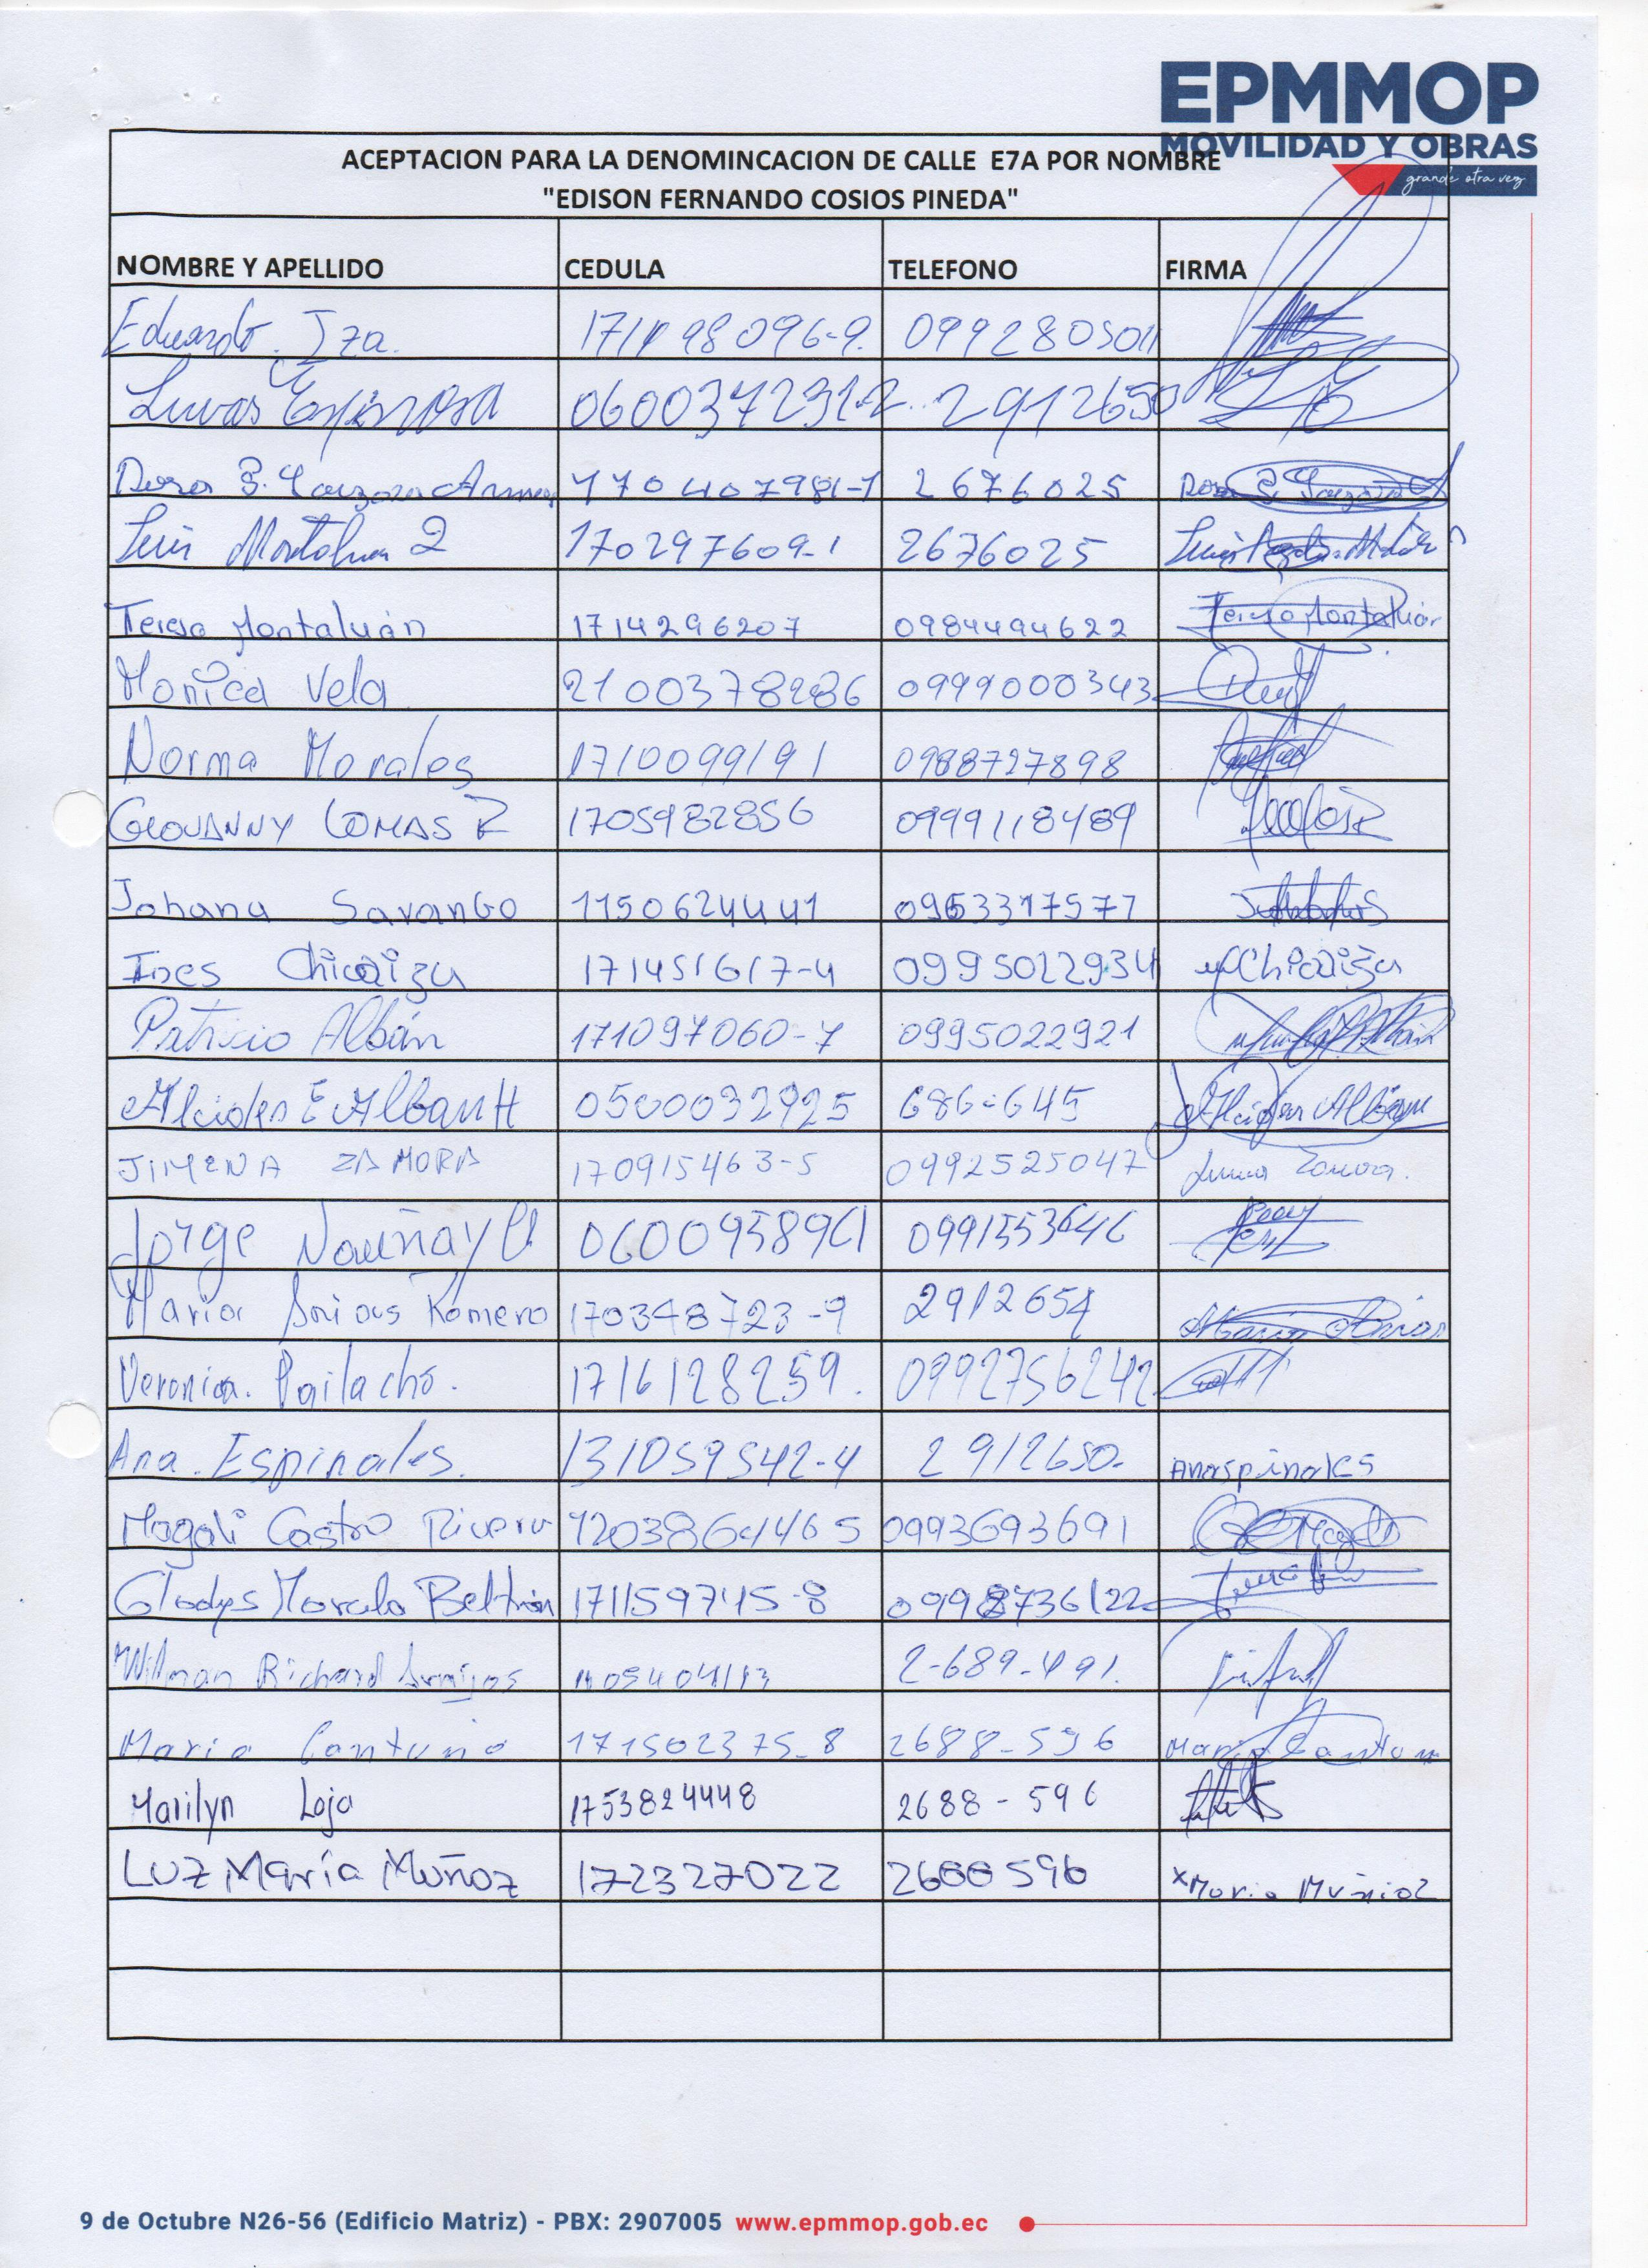 EPMMOP
MOVILIDAD Y OBRAS
grande otra vez
ACEPTACION PARA LA DENOMINCACION DE CALLE E7A POR NOMBRE
"EDISON FERNANDO COSIOS PINEDA"
NOMBRE Y APELLIDO CEDULA TELEFONO FIRMA
Eduardo. Iza. 0992805011
Luvas Espinosa 060037231-2 2912650
Rosa 170407981-1 2676025 Rosa
Luis 2 170297609-1 2676025 Luis
Teresa Montaluán 1714296207 0984494622 Teresa Montaluán
Monica Vela 2100378286 0999000343
Norma Morales 1710099191 0988727898
GEOVANNY COMAS R 1705982856 0999118489
Johana Savango 1150624441 0963317577
Ines Chicaiza 171451617-4 0995022934 Chicaiza
Patricio Albán 171097060-7 0995022921
Alcides E Alban H 0500032925 686-645 Alcides Alban
JIMENA ZAMORA 170915463-5 0992525047 Zamora.
Jorge Nauñay 0600958961 0991553646
Maria Arias Romero 170348723-9 2912654 Maria Arias
Veronica. Pailacho. 1716128259. 0992756242
Ana. Espinales. 131059542-4 2912650- Anaspinales
Magali Castro Rivera 1203864465 0993693691
Gladys Morales Beltrán 171159745-8 0998736122
Wilman Richard Armijos 2-689-491.
Maria Cantuño 171502375-8 2688-596 Maria
Marilyn Loja 1753824448 2688-596
LUZ María Muñoz 172327022 2688596 xMaria Muñioz
9 de Octubre N26-56 (Edificio Matriz) - PBX: 2907005 www.epmmop.gob.ec